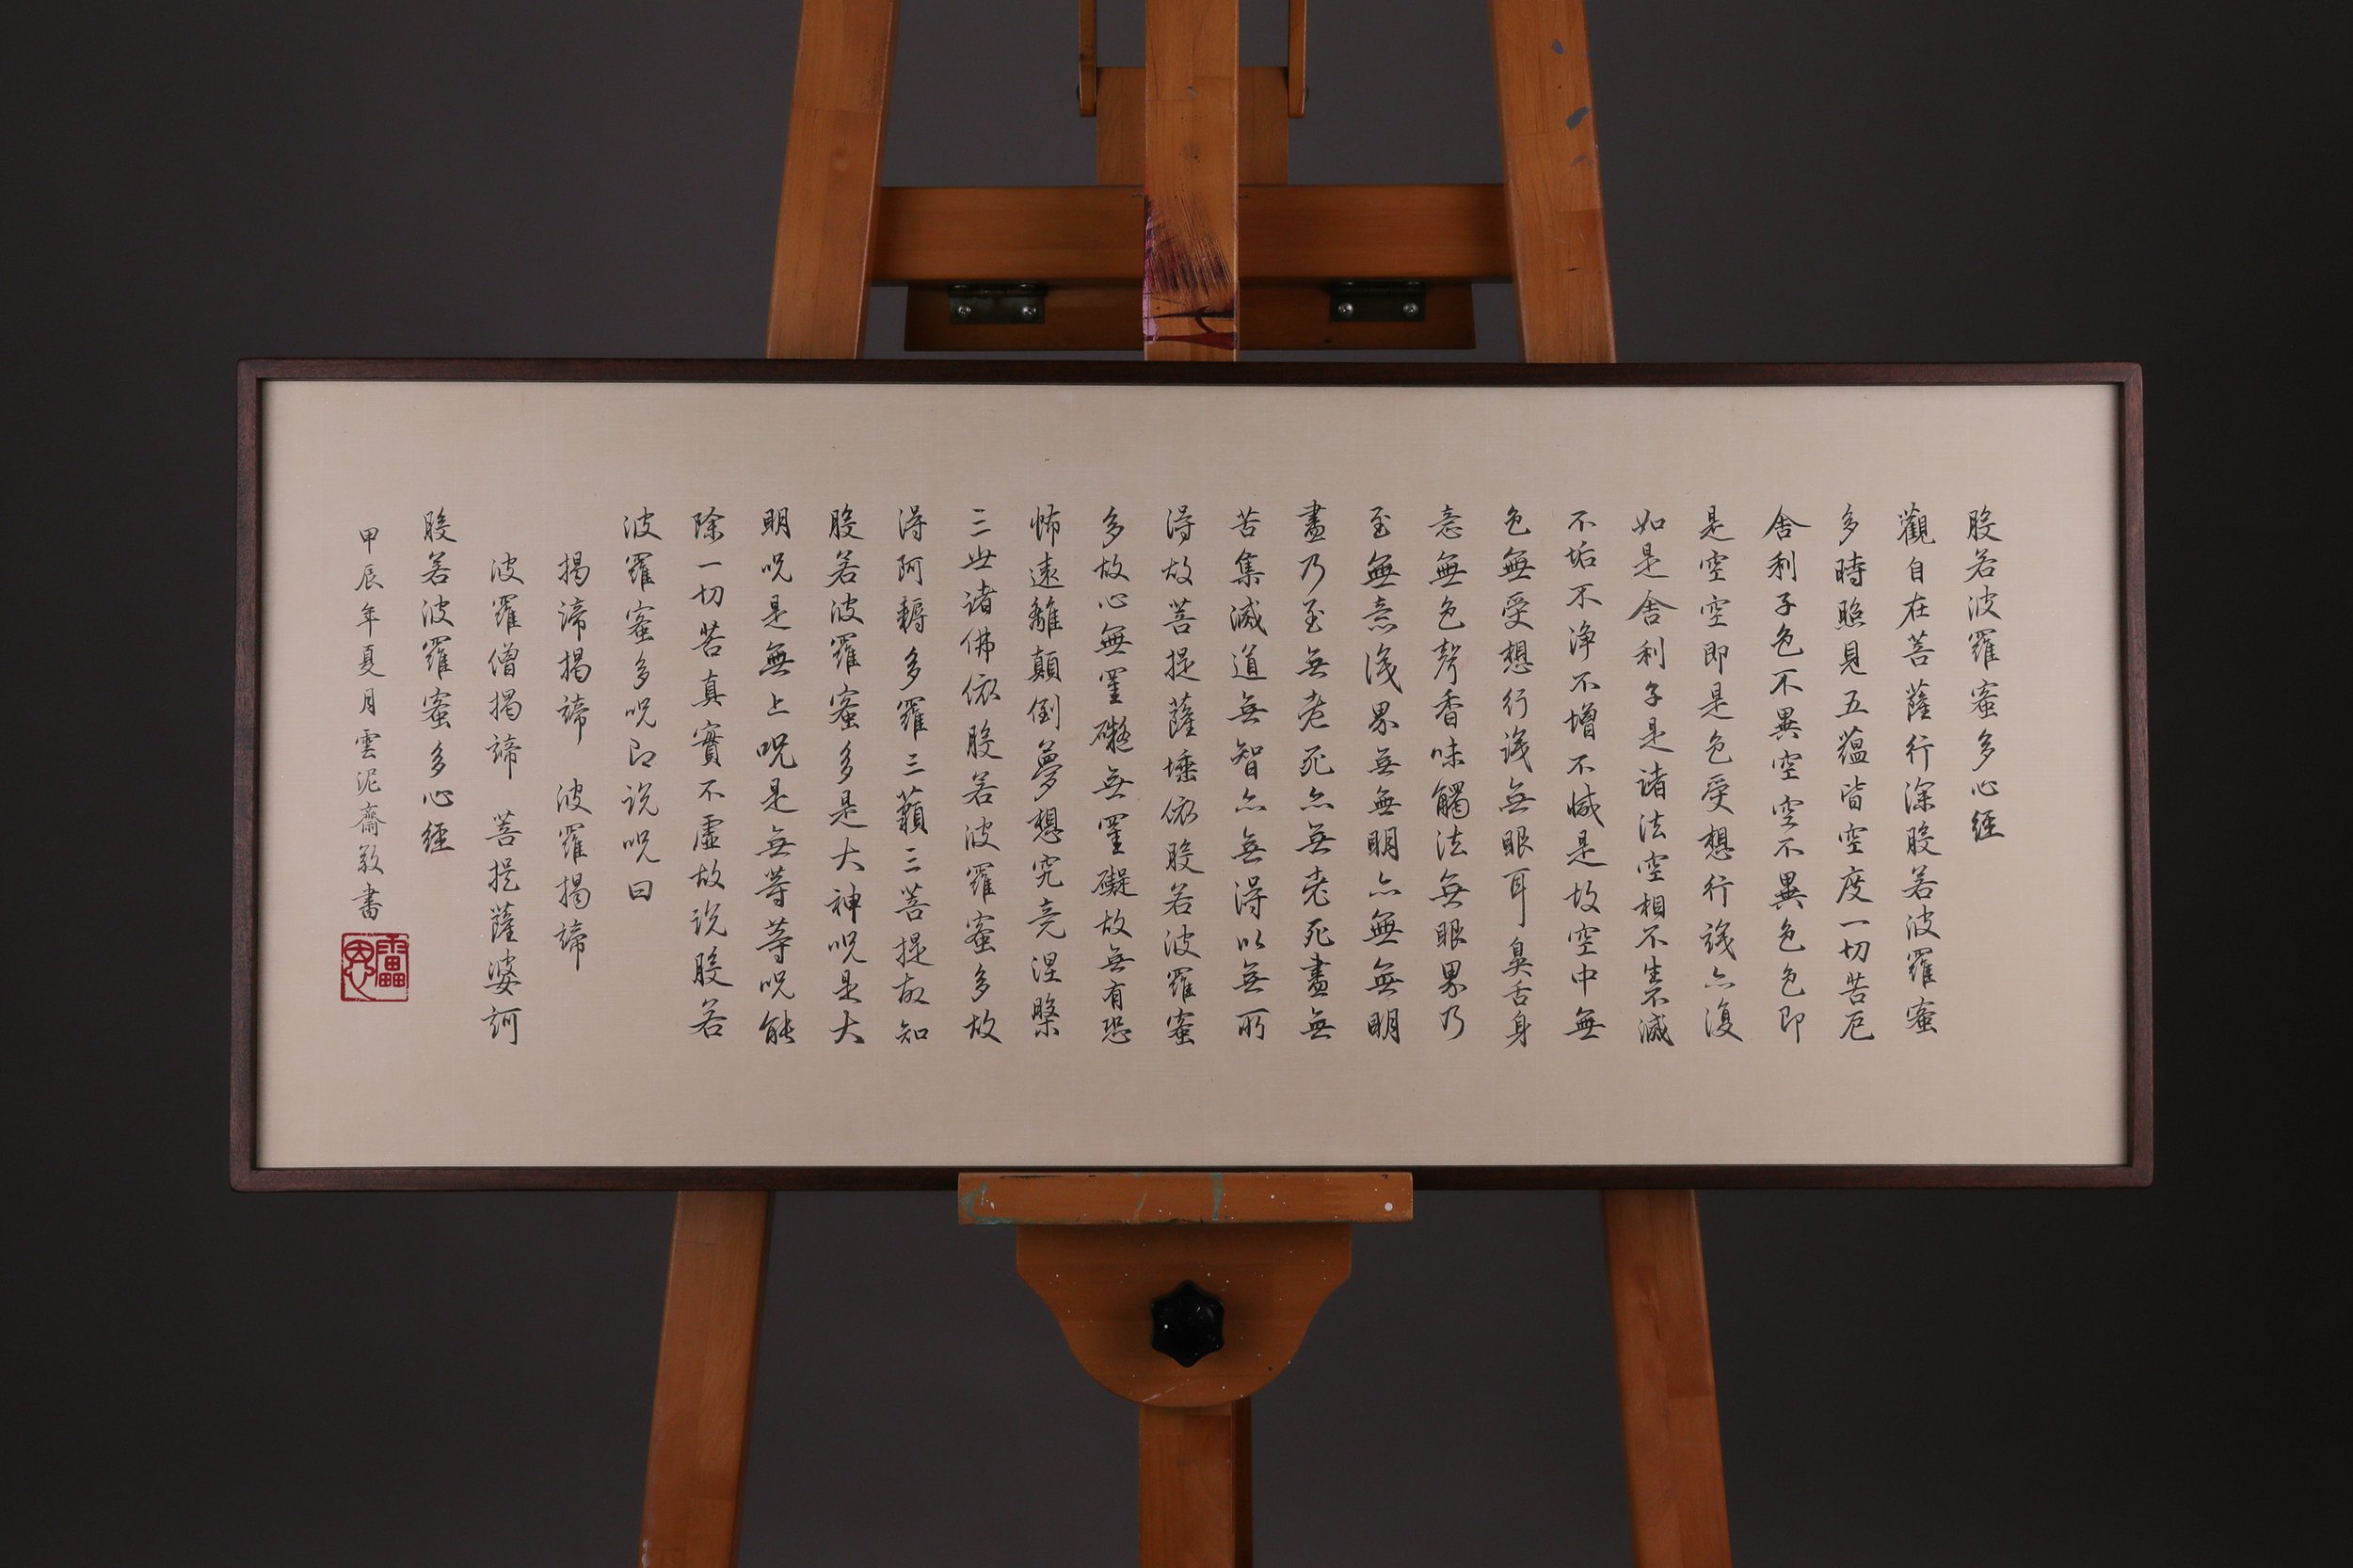 般若波羅蜜多心經
觀自在菩薩行深般若波羅蜜
多時照見五蘊皆空度一切苦厄
舍利子色不異空空不異色色即
是空空即是色受想行識亦復
如是舍利子是諸法空相不生不滅
不垢不淨不增不減是故空中無
色無受想行識無眼耳鼻舌身
意無色聲香味觸法無眼界乃
至無意識界無無明亦無無明
盡乃至無老死亦無老死盡無
苦集滅道無智亦無得以無所
得故菩提薩埵依般若波羅蜜
多故心無罣礙無罣礙故無有恐
怖遠離顛倒夢想究竟涅槃
三世諸佛依般若波羅蜜多故
得阿耨多羅三藐三菩提故知
般若波羅蜜多是大神呪是大
明呪是無上呪是無等等呪能
除一切苦真實不虛故說般若
波羅蜜多呪即說呪曰
揭諦揭諦 波羅揭諦
波羅僧揭諦 菩提薩婆訶
般若波羅蜜多心經
甲辰年夏月雲泥齋敬書